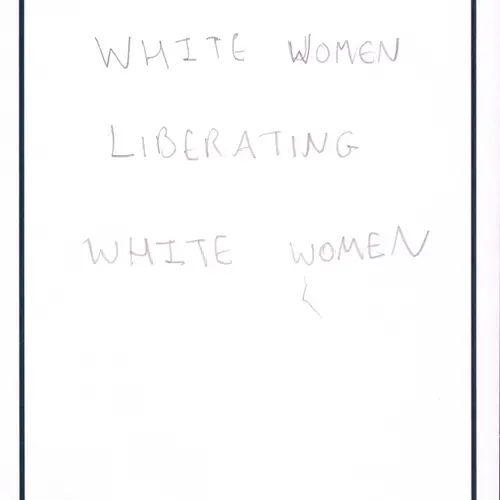 WHITE WOMEN
LIBERATING
WHITE WOMEN